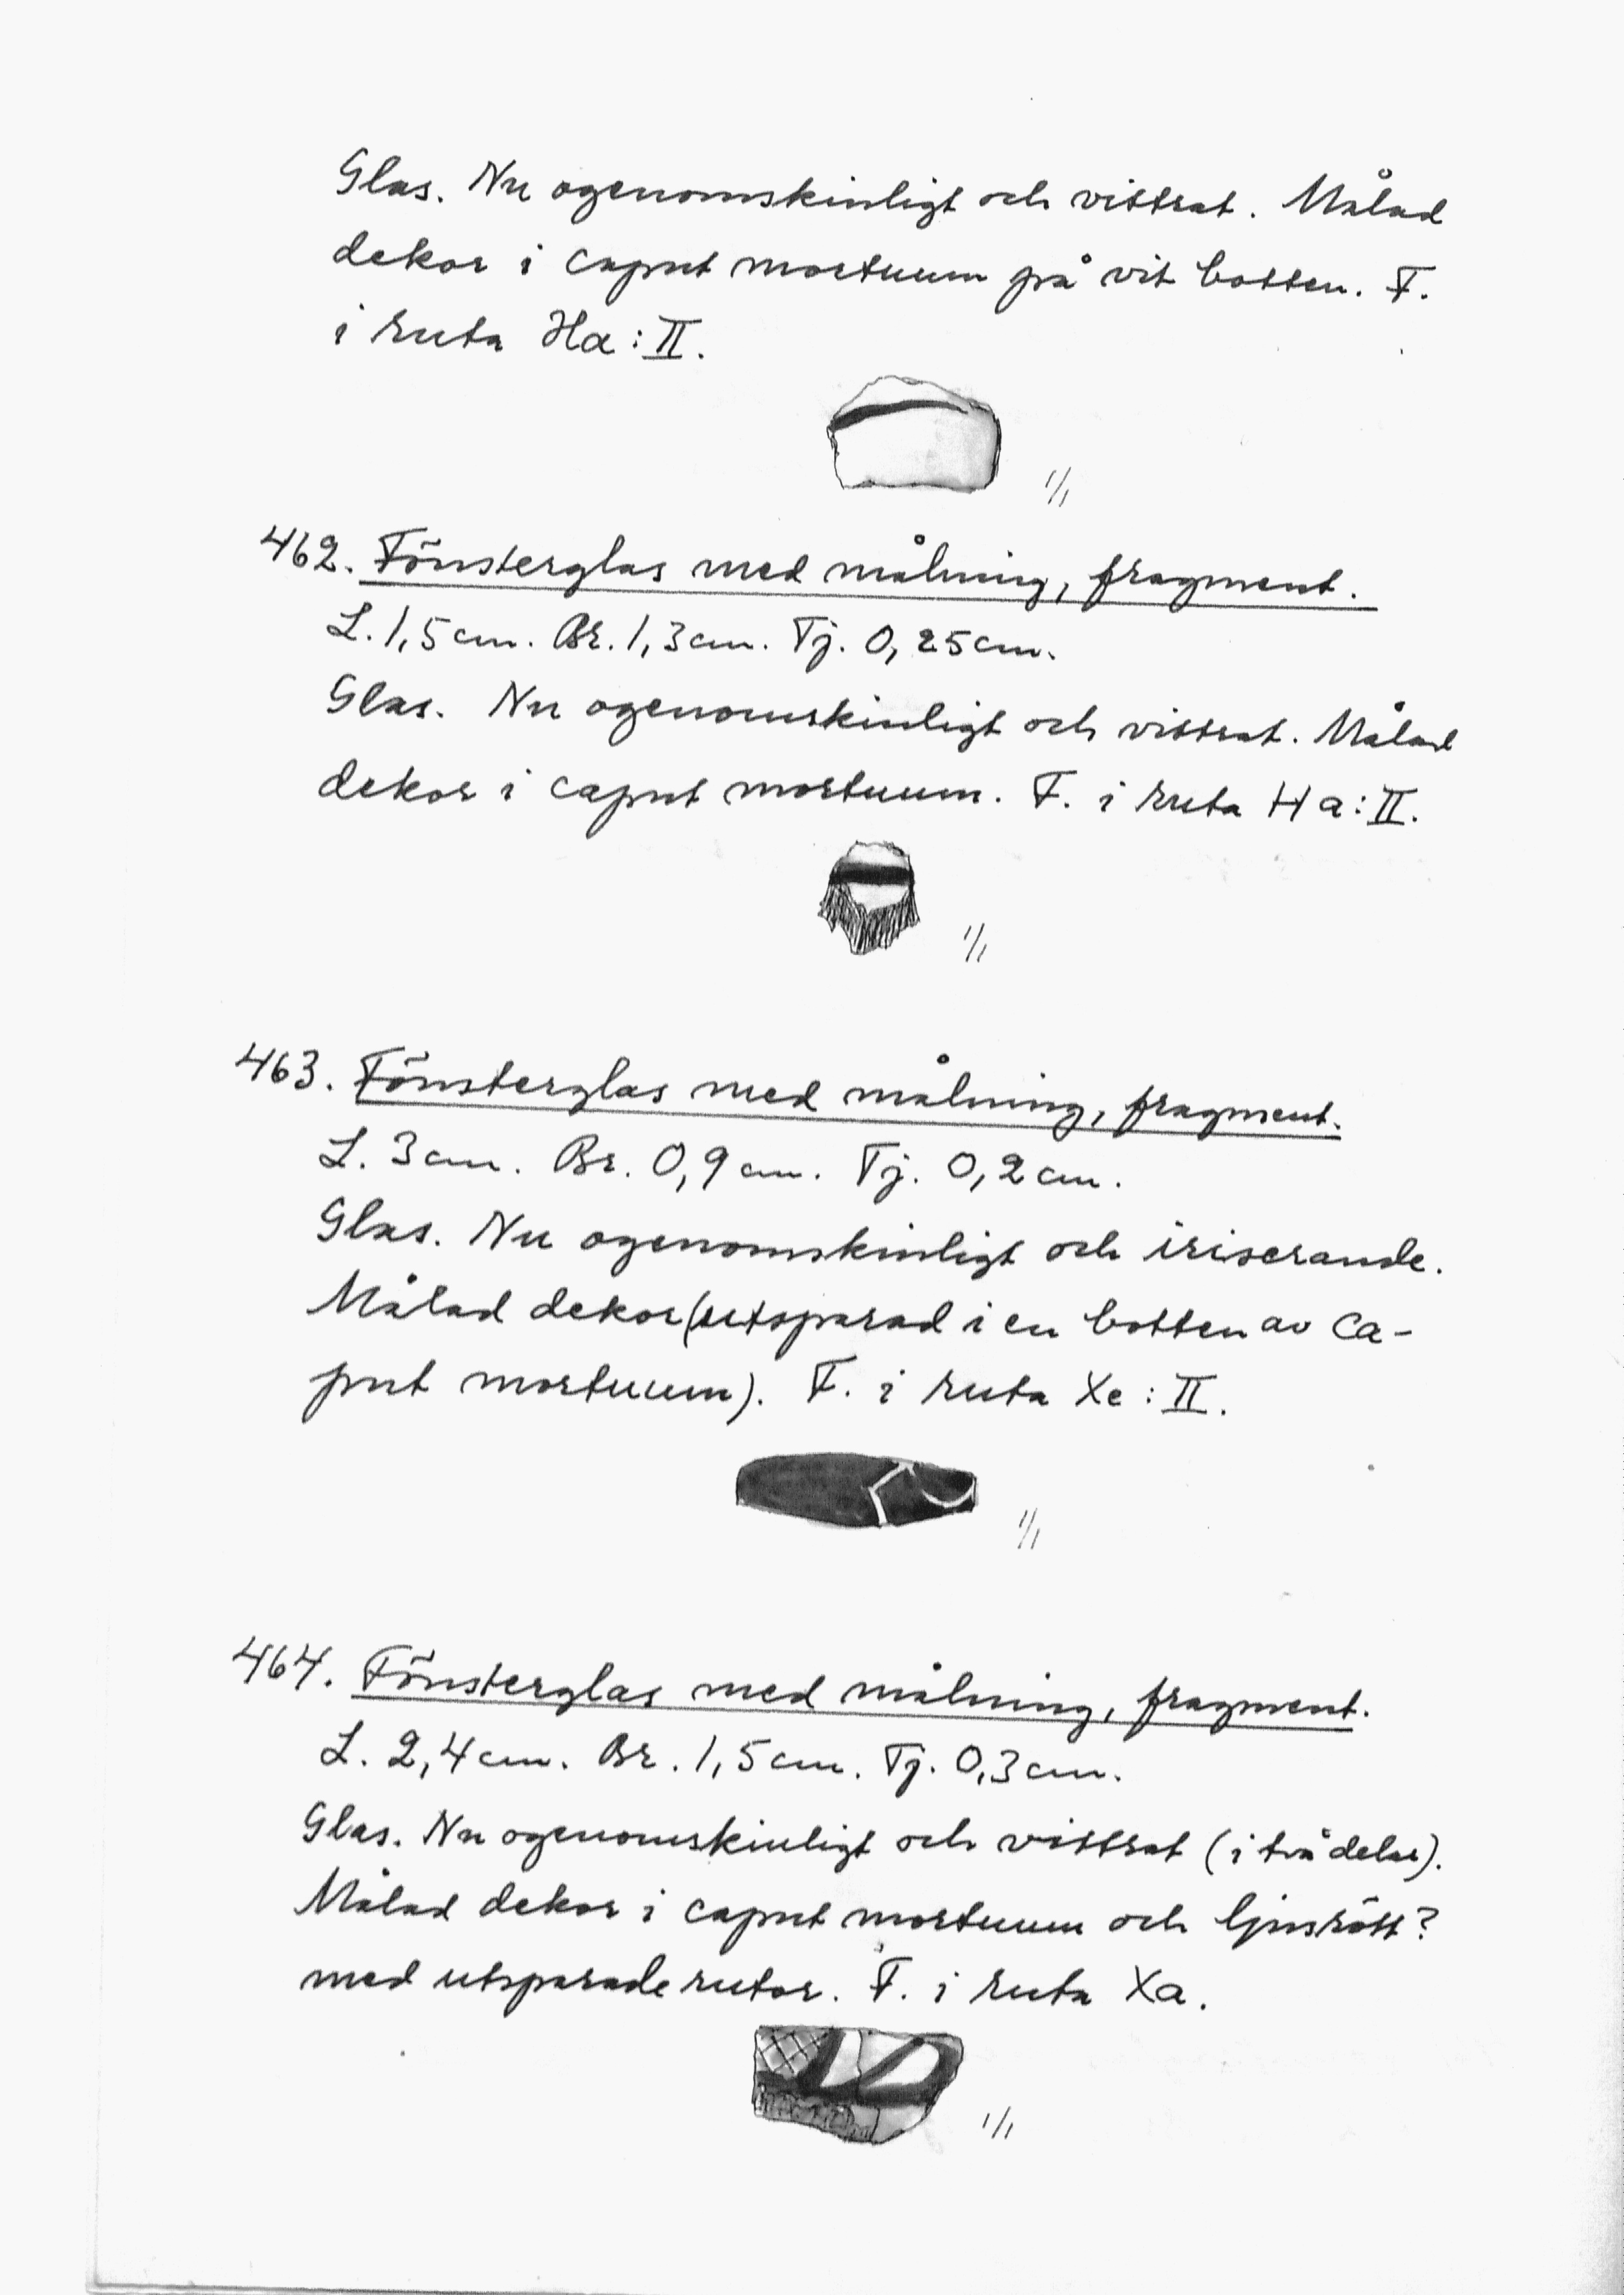 Glas. Nu ogenomskinligt och vittrat. Målad
dekor i caput mortuum på vit botten. F.
i ruta Ha:II.
1/1
462. Fönsterglas med målning, fragment.
L. 1,5 cm. Br. 1,3 cm. Tj. 0,25 cm.
Glas. Nu ogenomskinligt och vittrat. Målad
dekor i caput mortuum. F. i ruta Ha:II.
1/1
463. Fönsterglas med målning, fragment.
L. 3 cm. Br. 0,9 cm. Tj. 0,2 cm.
Glas. Nu ogenomskinligt och iriserande.
Målad dekor (utsparad i en botten av ca-
put mortuum). F. i ruta Xe:II.
1/1
464. Fönsterglas med målning, fragment.
L. 2,4 cm. Br. 1,5 cm. Tj. 0,3 cm.
Glas. Nu ogenomskinligt och vittrat (i två delar).
Målad dekor i caput mortuum och ljusrött?
med utsparade rutor. F. i ruta Xa.
1/1